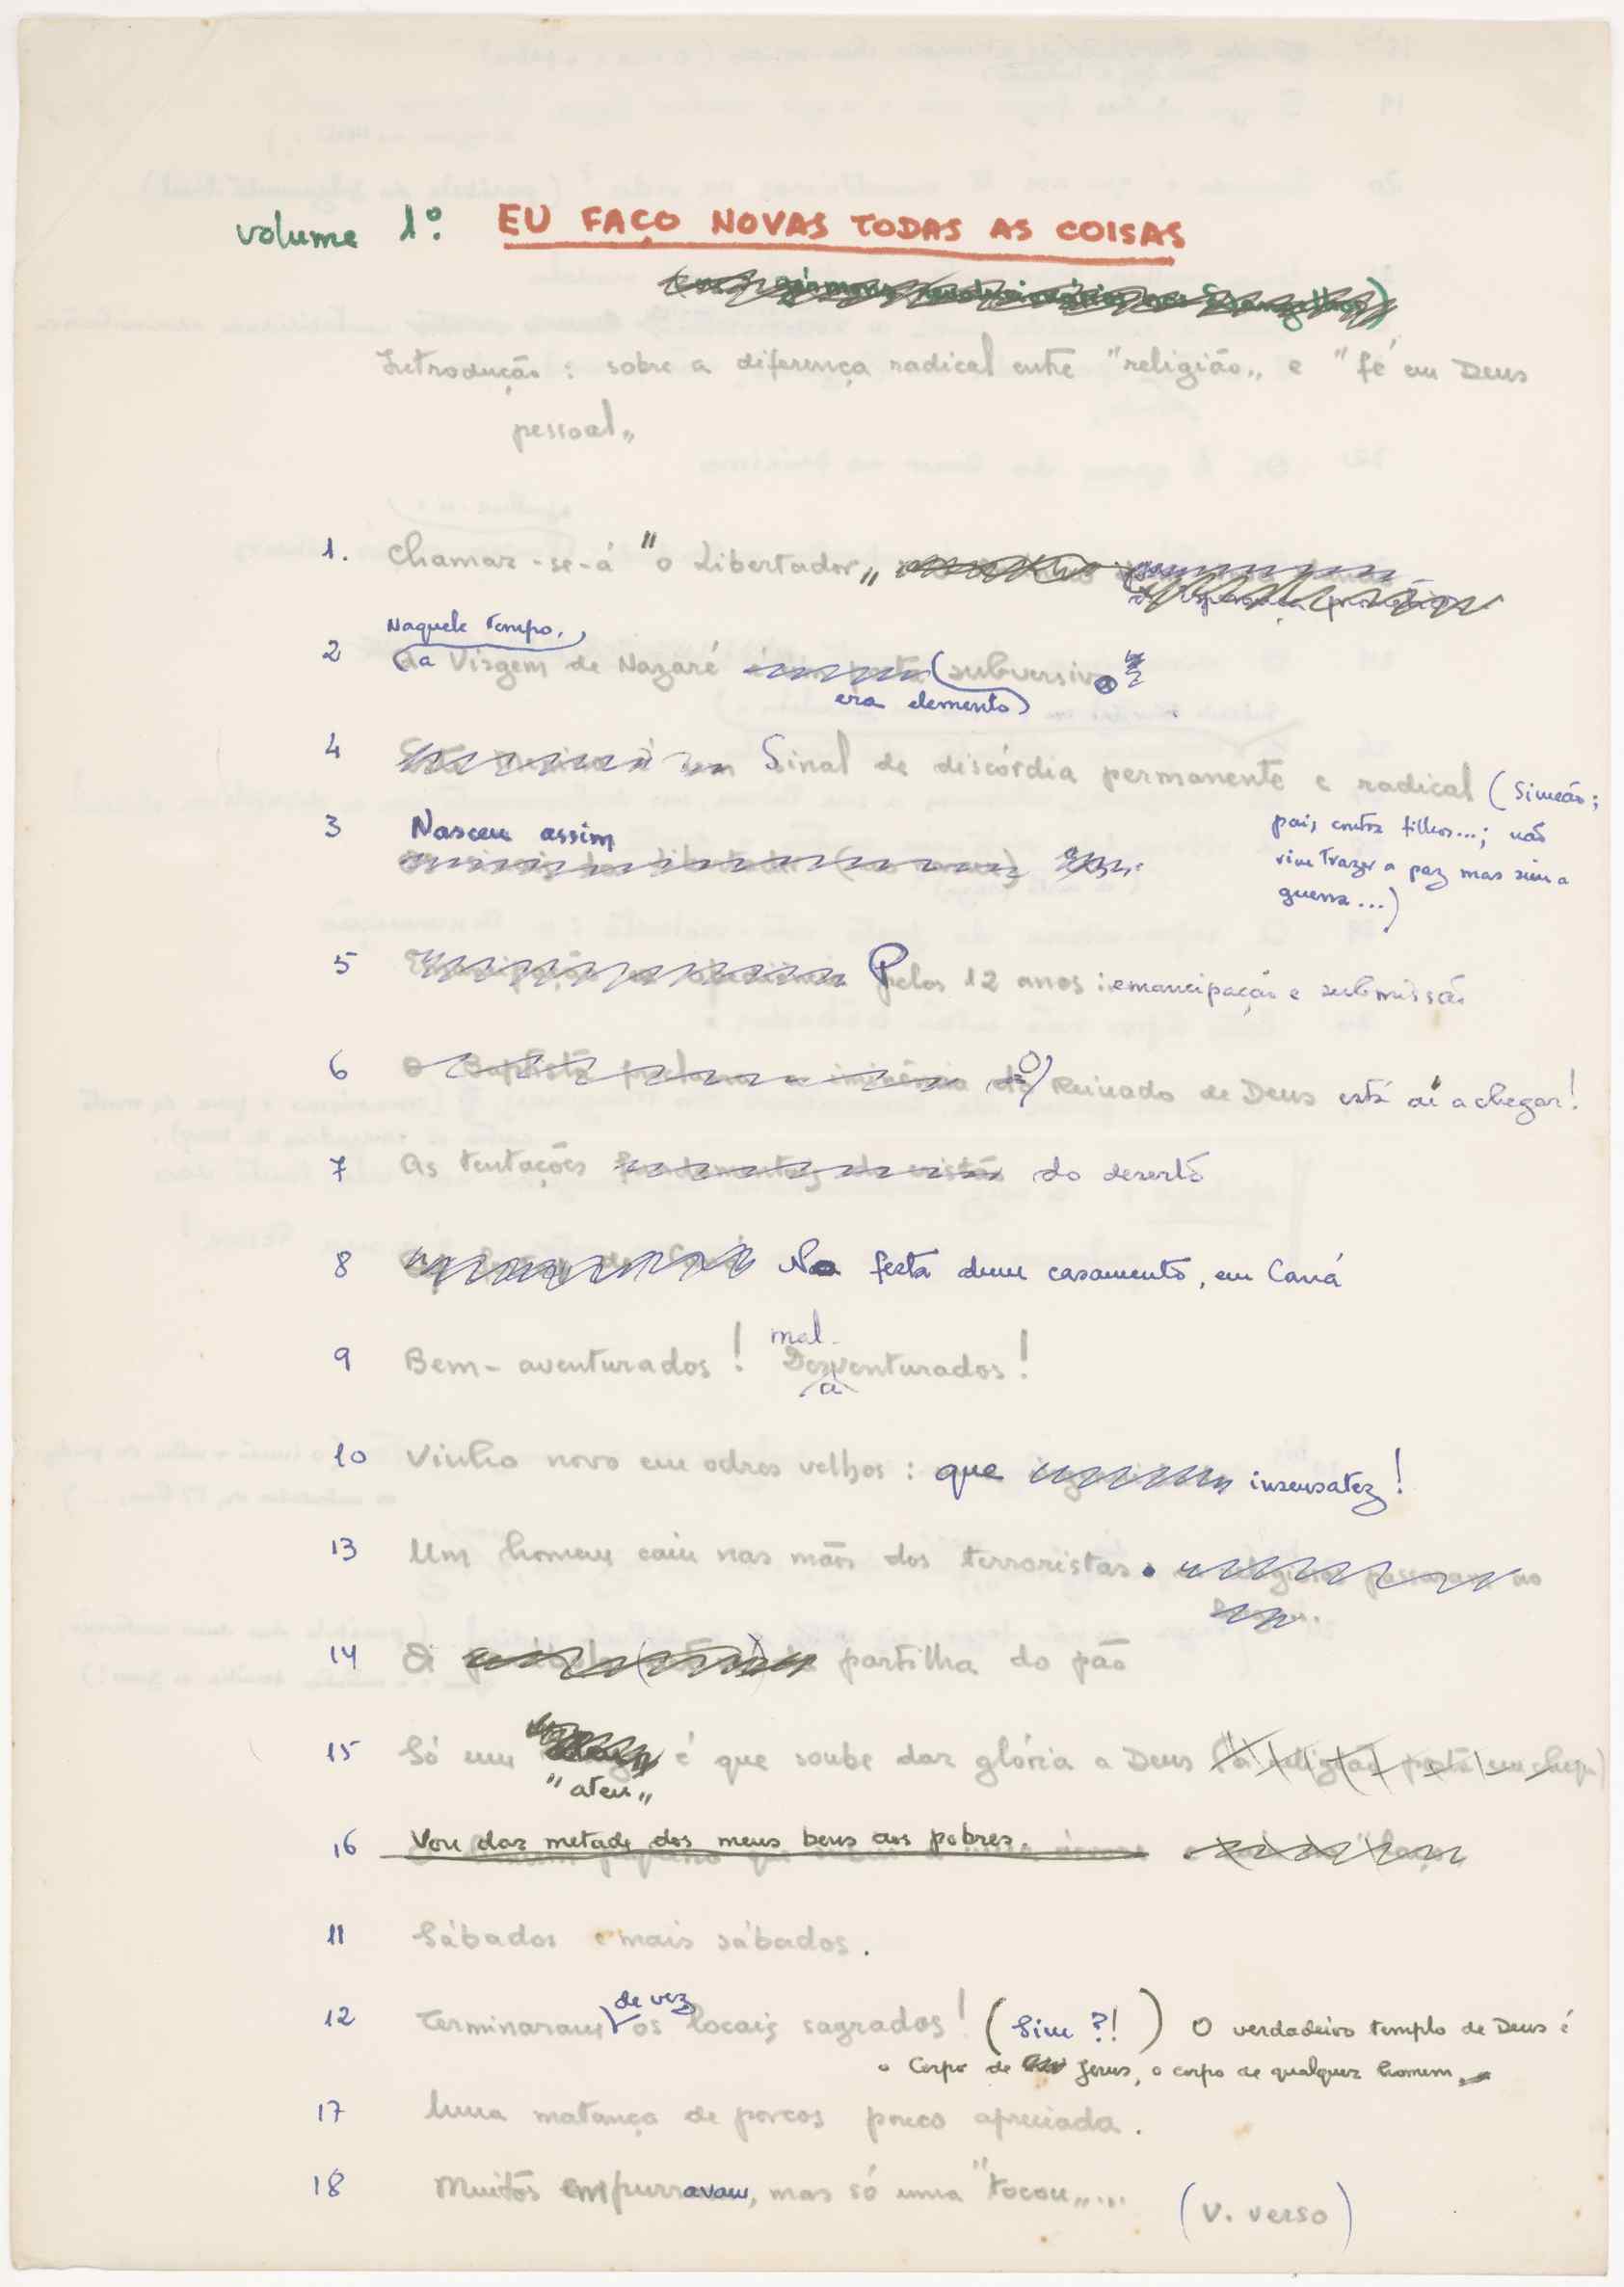 volume 1º: EU FAÇO NOVAS TODAS AS COISAS
Introdução : sobre a diferença radical entre "religião„ e "fé em Deus
pessoal„
1. Chamar-se-á "o Libertador„
Naquele tempo,
2 (a Virgem de Nazaré subversivo
era elemento)
4 Sinal de discórdia permanente e radical (Simeão;
pais contra filhos...; não
vim trazer a paz mas sim a
guerra...)
3 Nasceu assim
5 Pelos 12 anos : emancipação e submissão
6 O Reinado de Deus está aí a chegar!
7 As tentações do deserto
8 Na festa dum casamento, em Caná
mal-
9 Bem-aventurados! Desventurados!
a
10 Vinho novo em odres velhos : que insensatez!
13 Um homem caiu nas mãos dos terroristas.
14 A partilha do pão
15 Só um é que soube dar glória a Deus
"ateu„
16 Vou dar metade dos meus bens aos pobres.
11 Sábados e mais sábados.
de vez
12 Terminaram os locais sagrados! (Sim ?!) O verdadeiro templo de Deus é
o Corpo de Jesus, o corpo de qualquer homem.
17 Uma matança de porcos pouco apreciada.
18 Muitos empurravam, mas só uma "tocou„...
(v. verso)